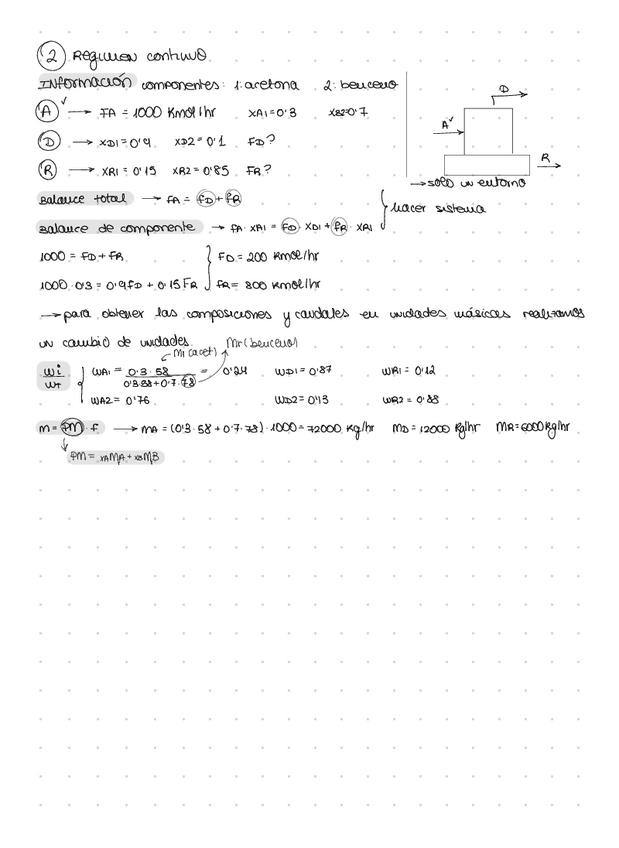 2 Regimen continuo.
INFormación componentes: 1: acetona 2: benceno
A → FA = 1000 Kmol/hr XA1 = 0'3 XB2=0'7
D → XD1=0'9 XD2=0'1 FD?
R → XR1 = 0'15 XR2 = 0'85 FR?
D
A
R
→ solo un entorno
Balance total → FA = FD + FR
Balance de componente → FA · XA1 = FD · XD1 + FR · XR1
hacer sistema
1000 = FD + FR
1000 · 0'3 = 0'9FD + 0'15 FR
FD = 200 Kmol/hr
FR = 800 Kmol/hr
→ para obtener las composiciones y caudales en unidades másicas realizamos
un cambio de unidades.
Mr(acet) Mr(benceno)
wi/wT WA1 = 0'3·58 / 0'3·58+0'7·78 = 0'24 WD1 = 0'87 WR1 = 0'12
WA2 = 0'76 WD2 = 0'13 WR2 = 0'88
m = PM · F → MA = (0'3·58 + 0'7·78) · 1000 = 72000 Kg/hr MD = 12000 Kg/hr MR = 6000 Kg/hr
PM = XAMA + XBMB